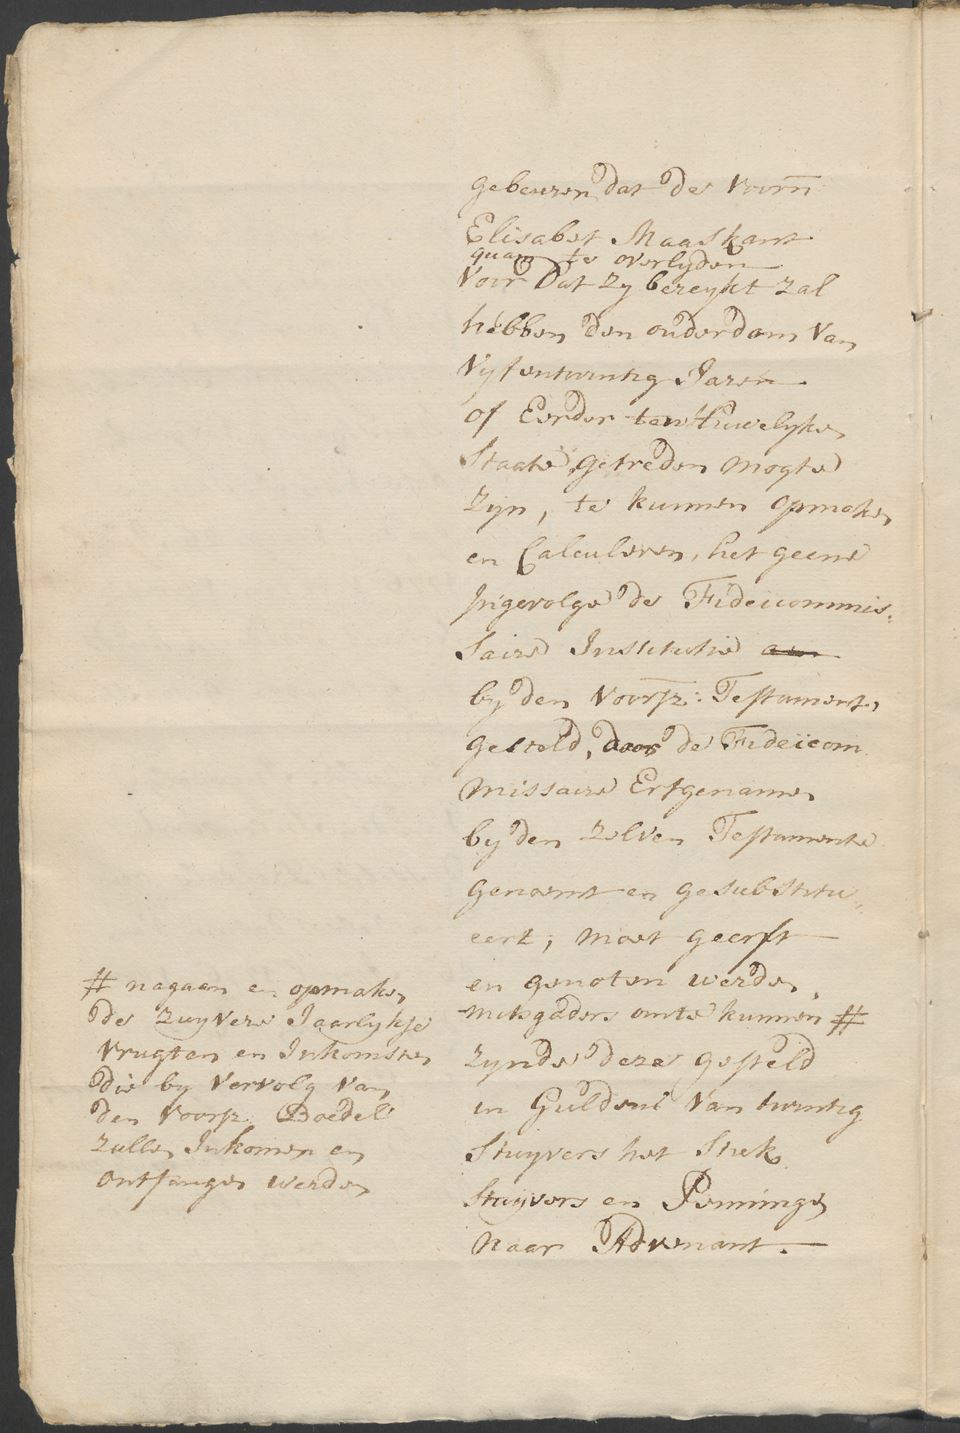 gebeuren dat de voorn:
Elisabet Maaskant
quam te overlyden
voor dat zy bereykt zal
hebben den ouderdom van
vyfentwintig Jaren
of Eerder ten Huwelyken
Staate getreden mogte
zyn, te kunnen opmaken
en Calculeren, het geene
ingevolge de Fideicommis-
saire Institutie aan
by den voorsz: Testamente
gesteld, door de Fideicom
missaire Erfgenamen
by den zelven Testamente
genoemt en gesubstitu-
eert, moet geerft
en genoten werden,
mitsgaders omte kunnen #
# nagaan en opmaken
de zuyvere Jaarlykse
vrugten en Inkomsten
die by vervolg van
den voorsz. Boedel
zullen Inkomen en
ontfangen werden
zynde deze gesteld
in Guldens van twintig
Stuyvers het Stuk
Stuyvers en Penningen
naar Advenant.